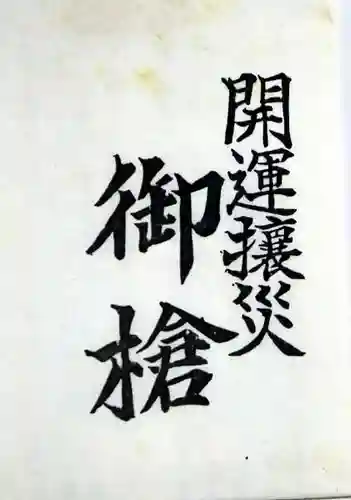 開運攘災
御槍